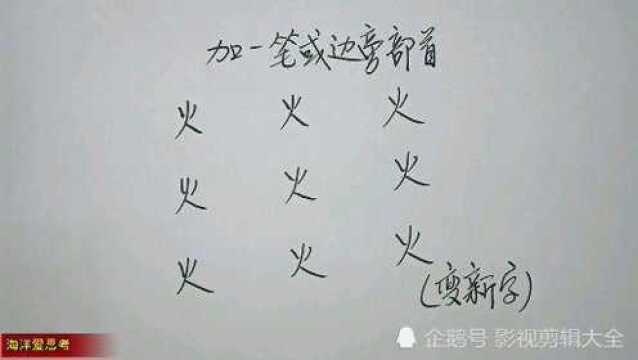 加一笔或边旁部首
火 火 火
火 火 火
火 火 火
(变新字)
海洋爱思考
企鹅号 影视剪辑大全